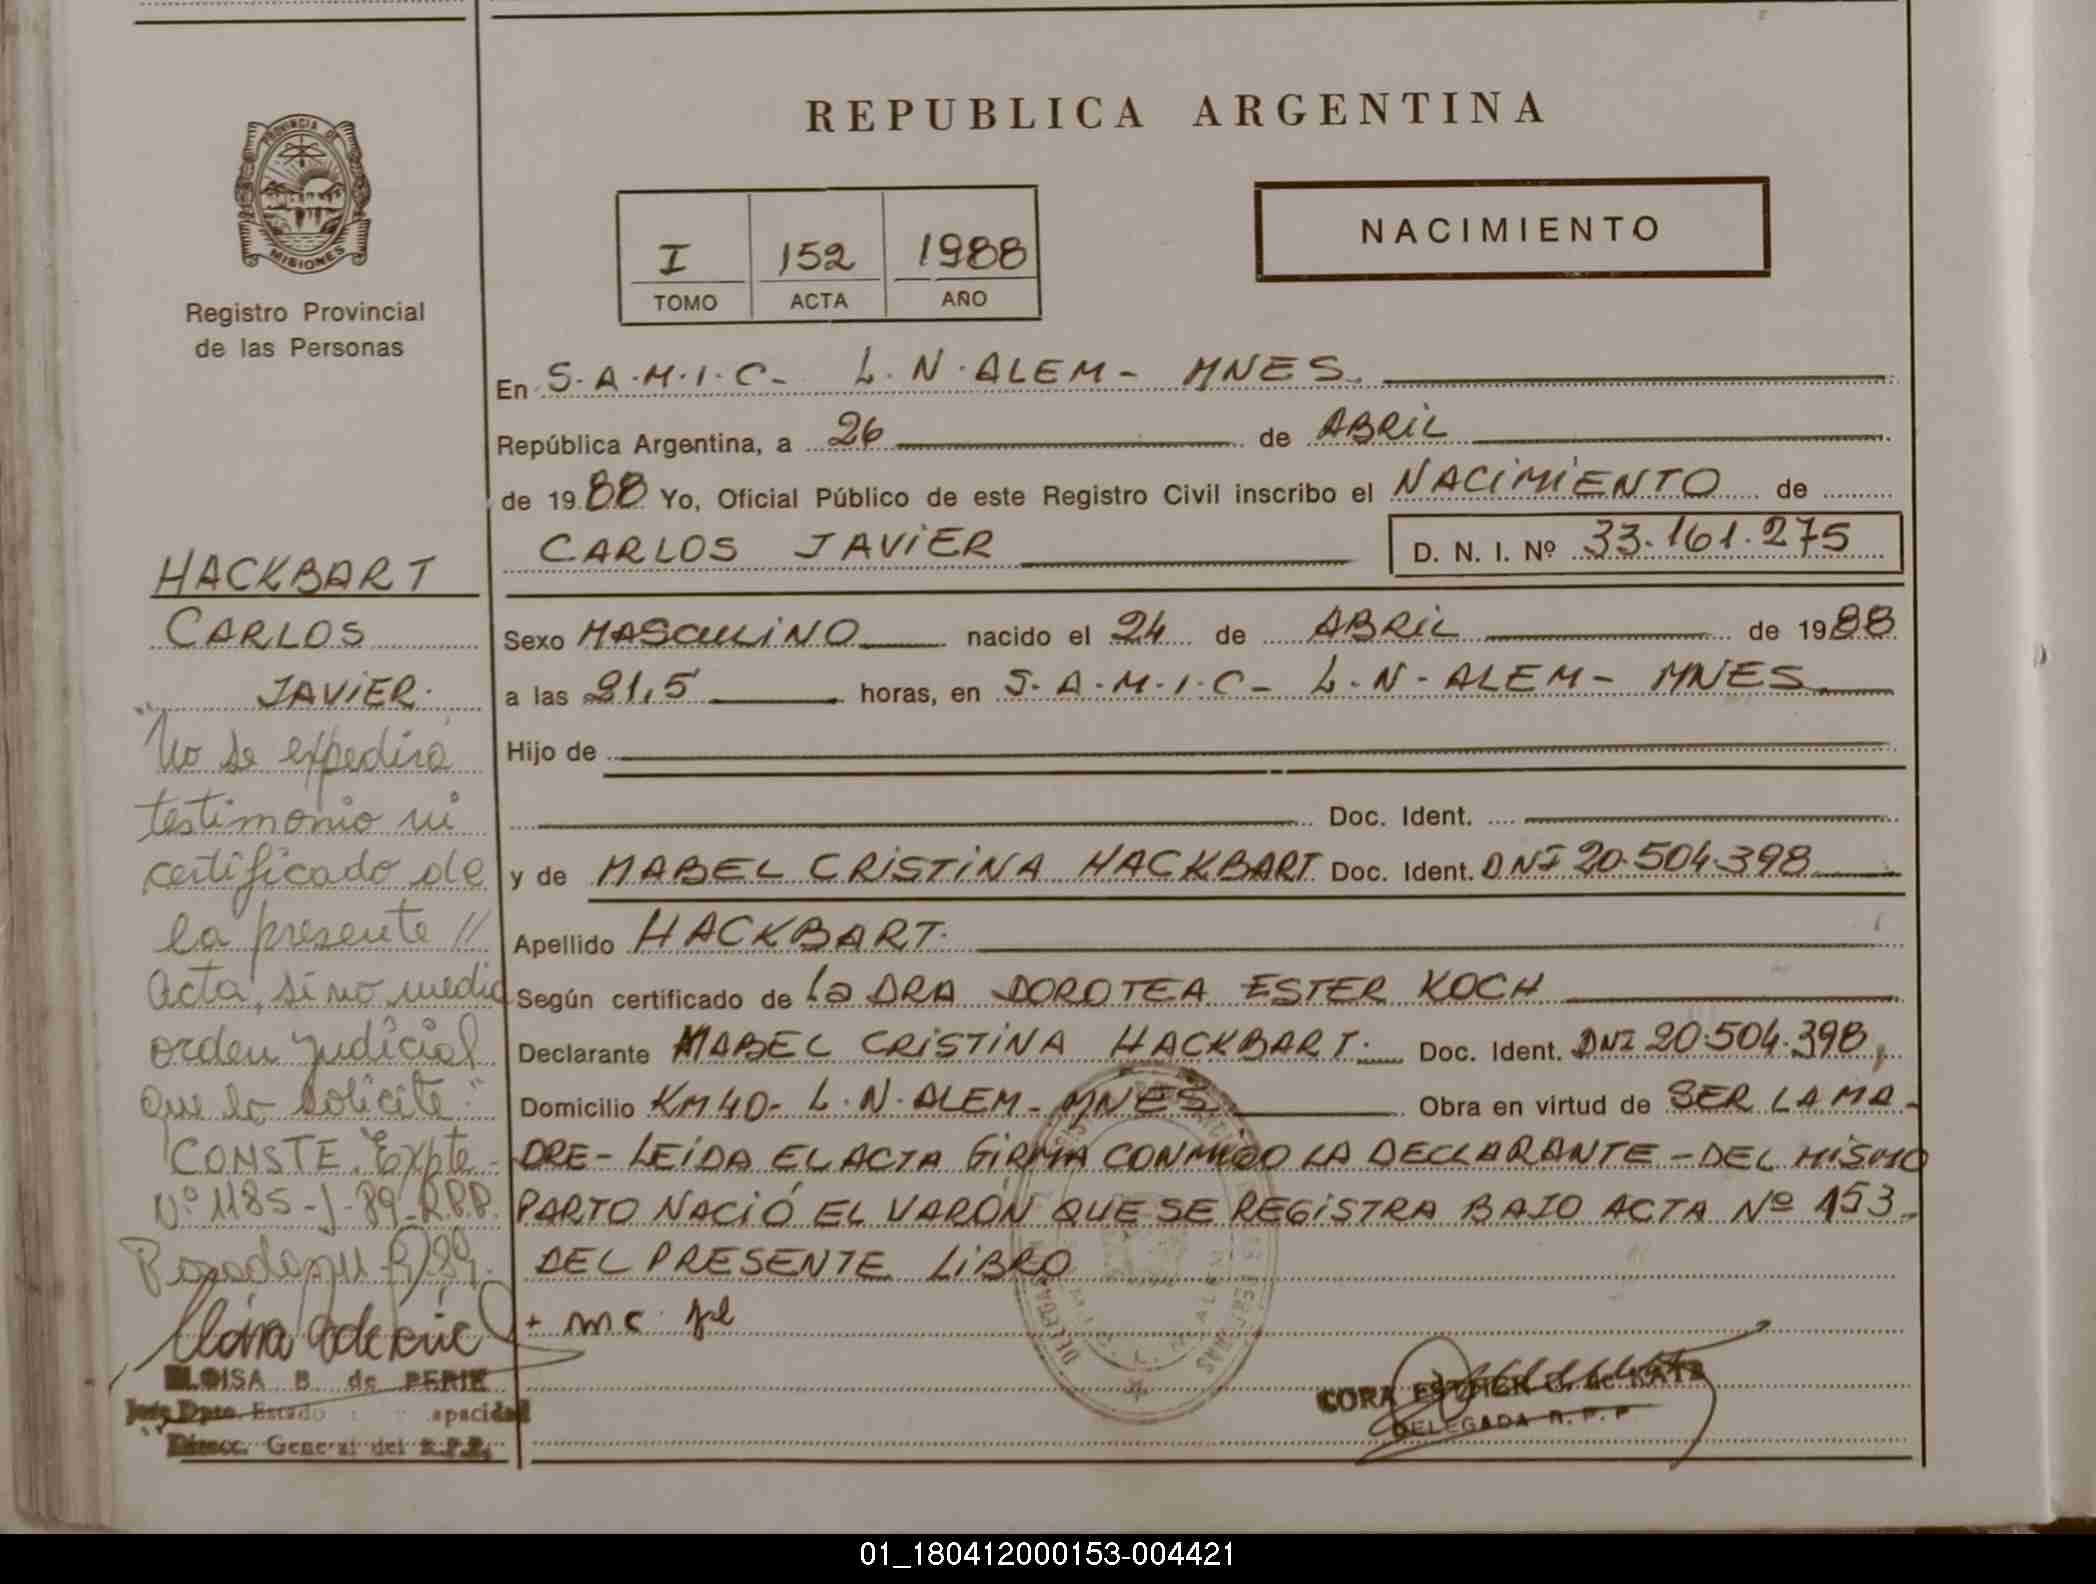 REPUBLICA ARGENTINA
PROVINCIA DE
MISIONES
Registro Provincial
de las Personas
I 152 1988
TOMO ACTA AÑO
NACIMIENTO
En S.A.M.I.C- L.N.ALEM- MNES.
República Argentina, a 26 de ABRIL
de 1988 Yo, Oficial Público de este Registro Civil inscribo el NACIMIENTO de
CARLOS JAVIER D. N. I. Nº 33.161.275
HACKBART
CARLOS
JAVIER.
"No se expedirá
testimonio ni
certificado de
la presente //
Acta, sino media
orden judicial
que lo solicite."
CONSTE. Expte-
Nº 1185-J-89-R.P.P.
ELOISA B. de PERIE
Direcc. General del R.P.P.
Sexo MASCULINO nacido el 24 de ABRIL de 1988
a las 21,5 horas, en S.A.M.I.C- L.N-ALEM- MNES
Hijo de
Doc. Ident.
y de MABEL CRISTINA HACKBART Doc. Ident. DNI 20.504.398
Apellido HACKBART.
Según certificado de la DRA DOROTEA ESTER KOCH
Declarante MABEL CRISTINA HACKBART. Doc. Ident. DNI 20.504.398,
Domicilio KM40- L.N.ALEM-MNES Obra en virtud de SER LA MA-
DRE- LEIDA EL ACTA FIRMA CONMIGO LA DECLARANTE-DEL MISMO
PARTO NACIÓ EL VARÓN QUE SE REGISTRA BAJO ACTA Nº 153
DEL PRESENTE LIBRO
+ mc
CORA ESTHER G. de KATZ
DELEGADA R. P. P
01_180412000153-004421